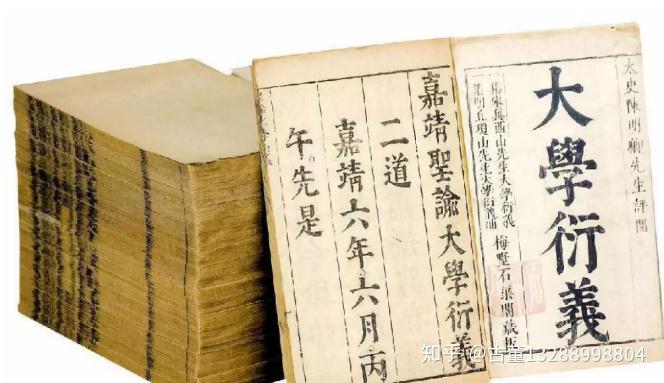 太史陳明卿先生評閱
大學衍義
一宋眞西山先生大學衍義
一明丘瓊山先生大學衍義補
梅墅石渠閣藏板
嘉靖聖諭大學衍義
二道
嘉靖六年六月丙
午先是
知乎 @古董13288998804